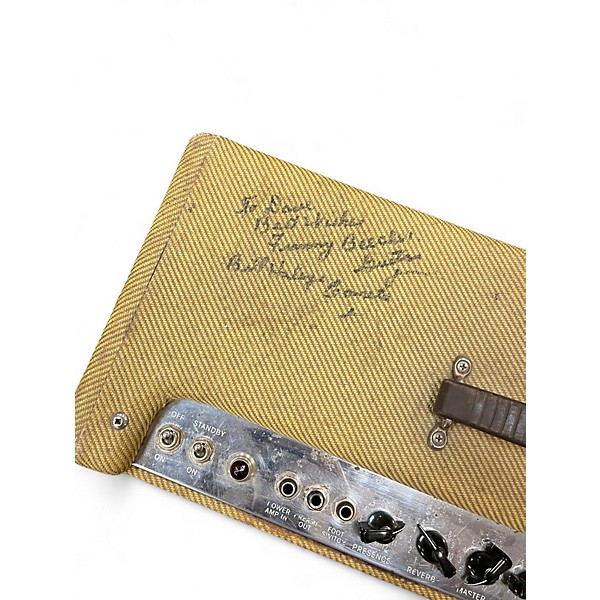 To Dave
Best Wishes
Franny Beecher
Guitar
Bill Haley's Comets
OFF STANDBY
ON ON
POWER AMP IN
OUT
FOOT SWITCH
PRESENCE
REVERB
MASTER